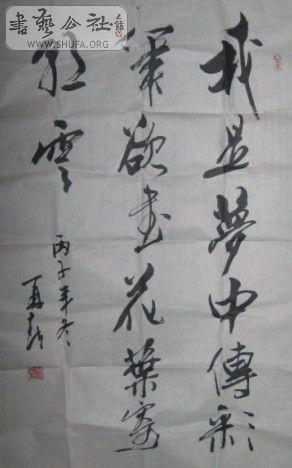 書藝公社
WWW.SHUFA.ORG
我是夢中傳彩
筆欲書花葉寄
朝雲
丙子年冬